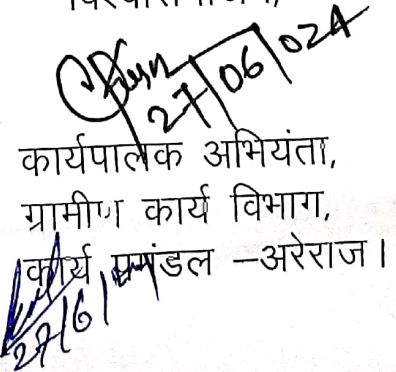 27/06/024
कार्यपालक अभियंता,
ग्रामीण कार्य विभाग,
कार्य प्रमंडल –अरेराज।
27/6/